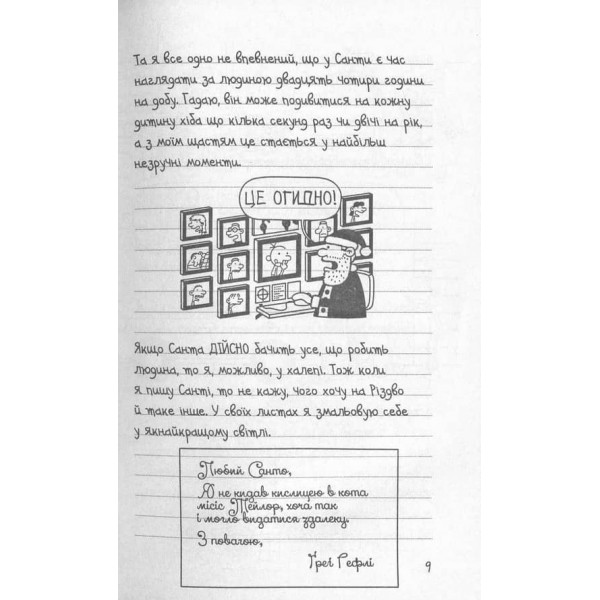 Та я все одно не впевнений, що у Санти є час
наглядати за людиною двадцять чотири години
на добу. Гадаю, він може подивитися на кожну
дитину хіба що кілька секунд раз чи двічі на рік,
а з моїм щастям це стається у найбільш
незручні моменти.
ЦЕ ОГИДНО!
Якщо Санта ДІЙСНО бачить усе, що робить
людина, то я, можливо, у халепі. Тож коли
я пишу Санті, то не кажу, чого хочу на Різдво
й таке інше. У своїх листах я змальовую себе
у якнайкращому світлі.
Любий Санто,
Я не кидав кислицею в кота
місіс Тейлор, хоча так
і могло видатися здалеку.
З повагою,
Ґреґ Гефлі
9